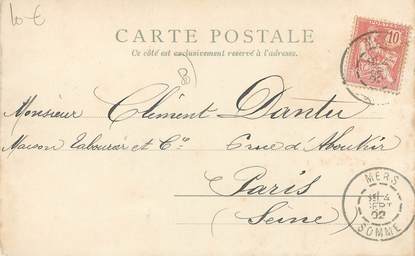 10-€
CARTE POSTALE
Ce côté est exclusivement réservé à l'adresse.
10
Monsieur Clément Dantu
Maison Tabourier et Cie 6 rue d'Aboukir
Paris
(Seine)
MERS
SEPT
02
SOMME